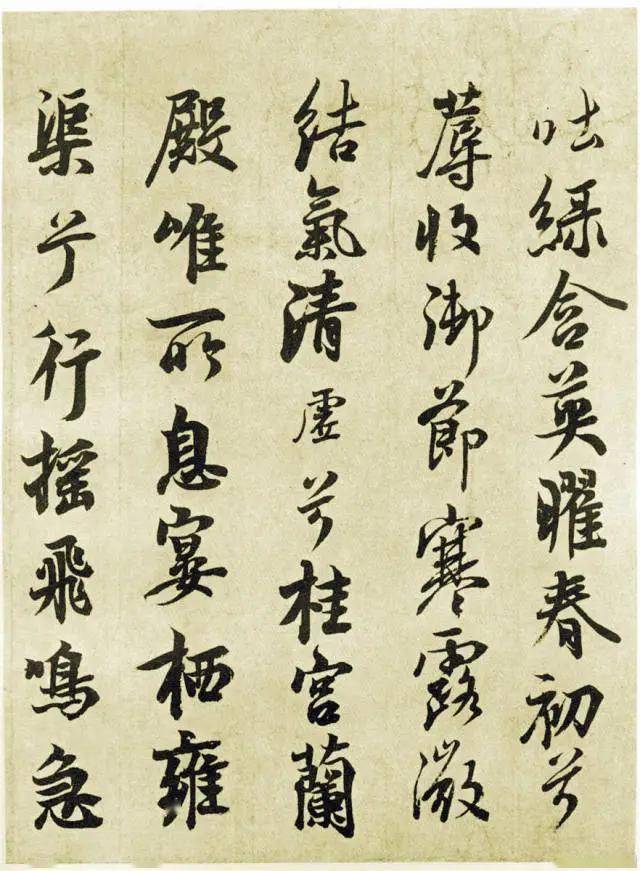 吐緑含英曜春初兮
蓐收御節寒露微
結氣清虚兮桂宫蘭
殿唯所息宴栖雍
渠兮行摇飛鳴急